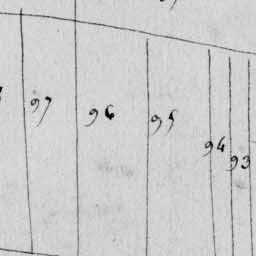 97 96 95 94 93